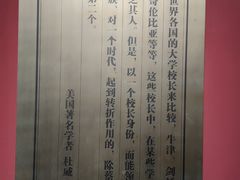 世界各国的大学校长来比较，牛津、剑
哥伦比亚等等，这些校长中，在某些学
之其人。但是，以一个校长身份，而能领
族、对一个时代，起到转折作用的，除蔡
第二个。
美国著名学者 杜威